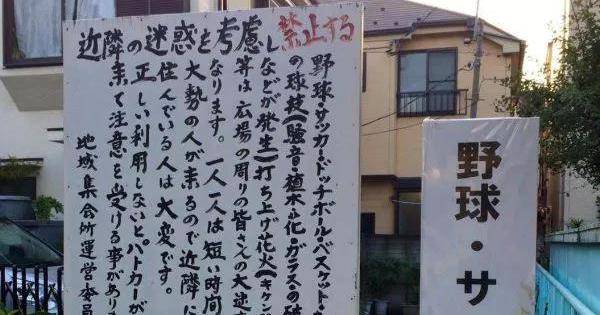 近隣の迷惑を考慮し禁止する
野球・サッカー・ドッチボール・バスケット
の球技(騒音・植木・花・ガラスの破
などが発生)打ち上げ花火(キケン
等は広場の周りの皆さんの大迷
なります。一人一人は短い時間
大勢の人が来るので近隣に
住んでいる人は大変です。
正しい利用しないと、パトカーが
来て注意を受ける事があり
地域集会所運営委員
野球・サ